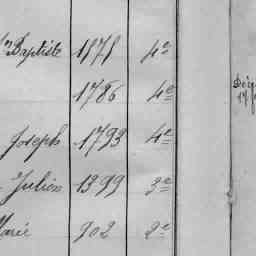 Bte Baptiste 1571 4e
1786 4e
Joseph 1793 4e
Julien 1399 3e
Marie 902 2e